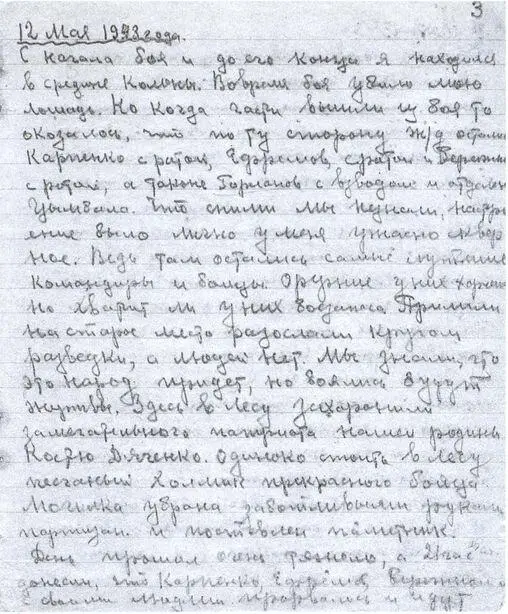 3
12 Мая 1943 года.
С начала боя и до его конца я находился
в средине колоны. Вовремя боя убило мою
лошадь. Но когда части вышли из боя то
оказалось, что по ту сторону ж/д остали
Карпенко с ротой, Ефремов, с ротой и Бережн
с ротой, а также Гарманов с взводом и отделен
Цымбала. Что сними мы незнали, настро
ение было лично у меня ужасно сквер
ное. Ведь там остались самые лучшие
командиры и бойцы. Оружие у них хорош
но хватит ли у них боезапаса. Пришли
на старое место разослали кругом
разведки, а людей нет. Мы знали, что
это народ придет, но боялись будут
жертвы. Здесь в лесу захоронили
замечательного патриота нашей родины
Костю Дяченко. Одиноко стоить в лесу
песчаный холмик прекрасного бойца
Могилка убрана заботливыми руками
партизан. и поставлен паметник.
День прошол очень тяжело, а 21 час
донесли, что Карпенко, Ефремов Бережной
с своими людьми прорвались и идут